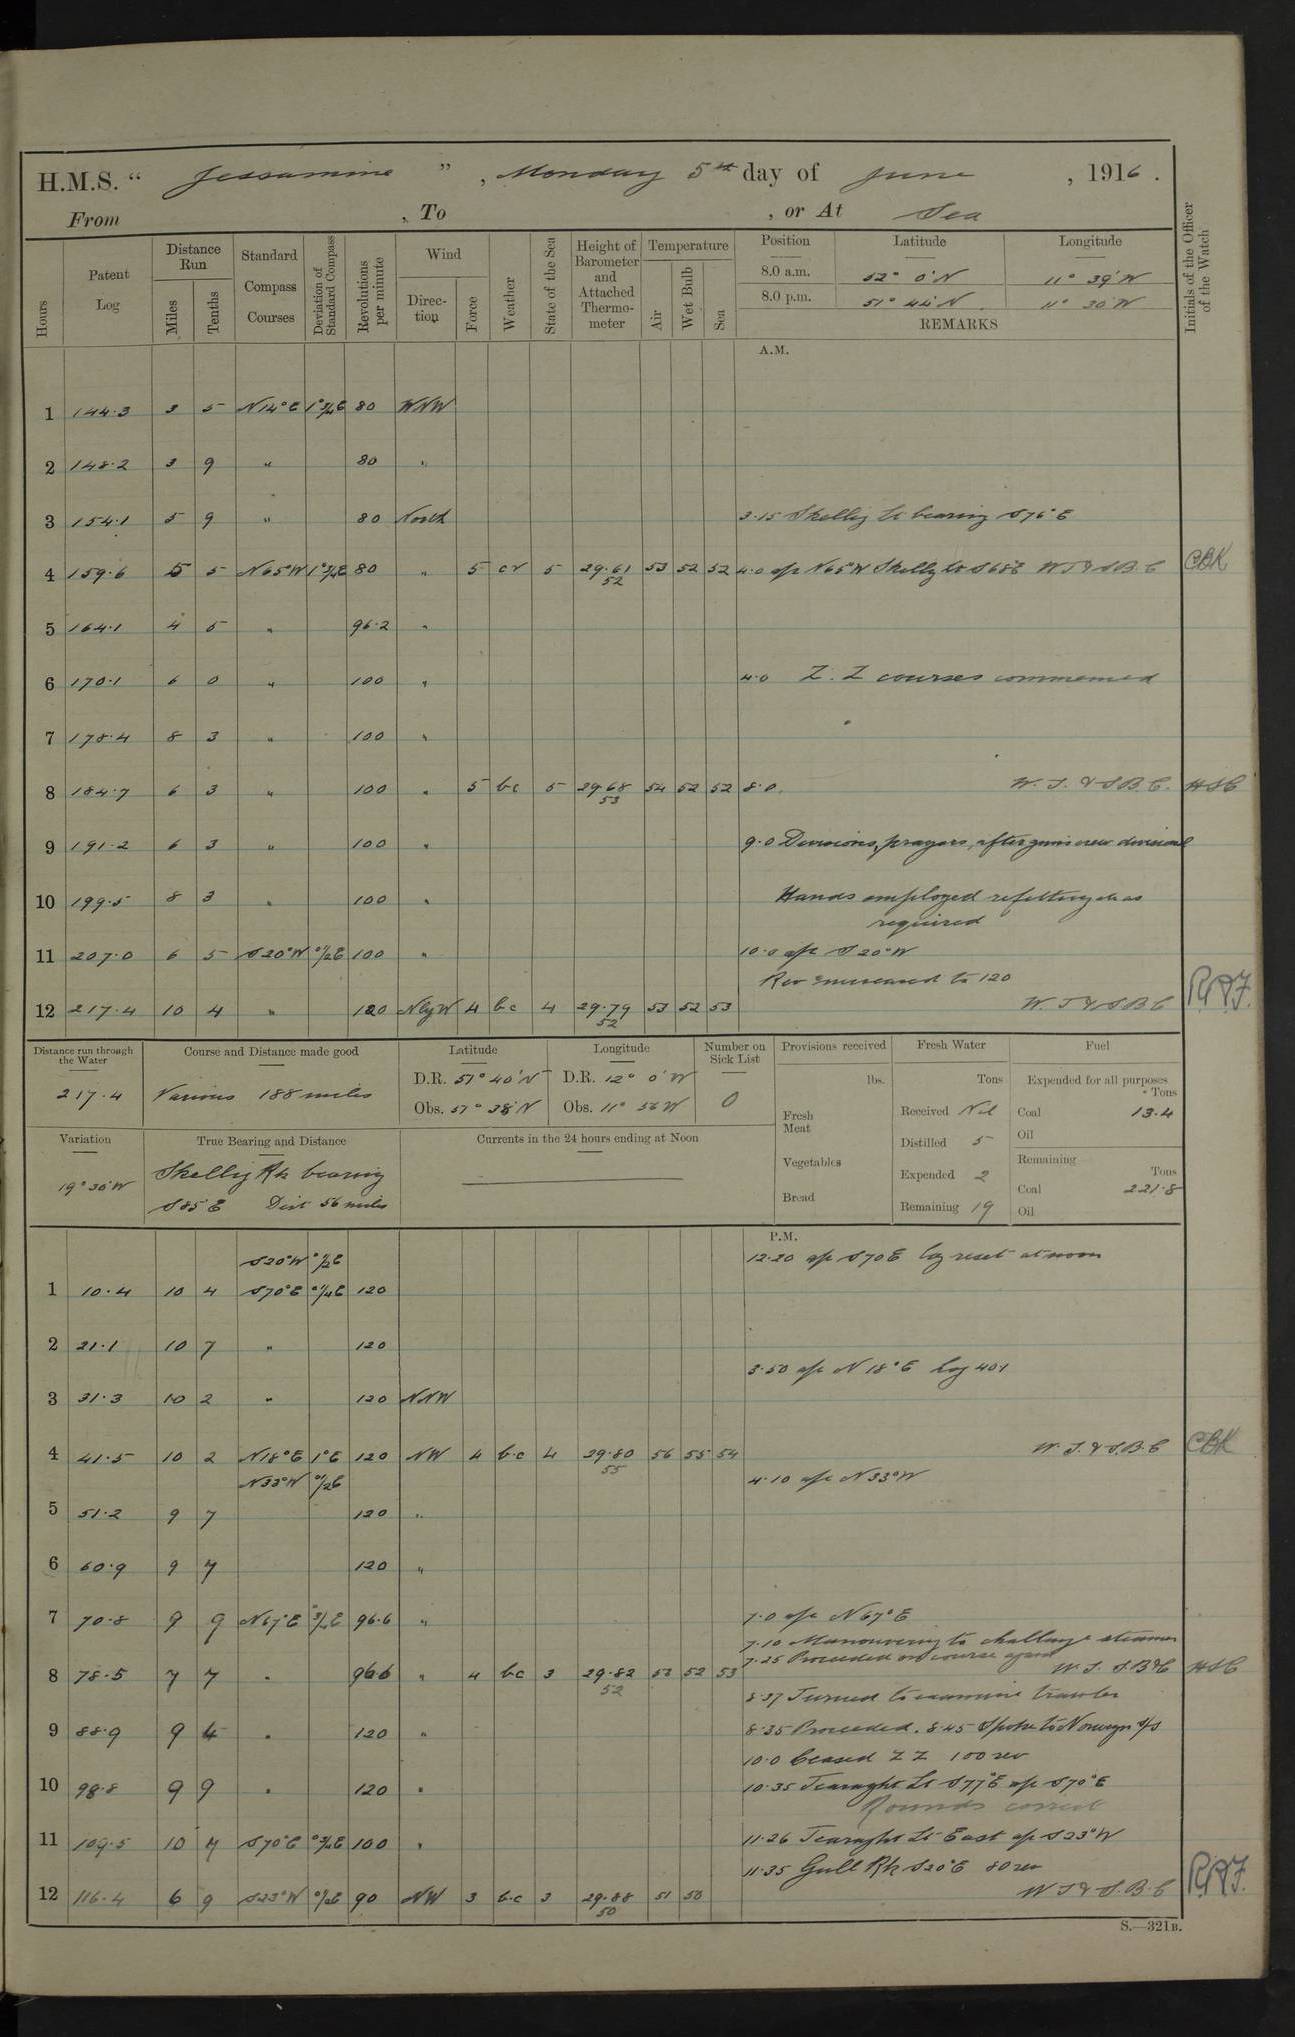 H.M.S. " Jessamine ", Monday 5th day of June, 1916.
From , To , or At Sea
Hours
Patent Log
Distance Run
Miles
Tenths
Standard Compass Courses
Deviation of Standard Compass
Revolutions per minute
Wind
Direction
Force
Weather
State of the Sea
Height of Barometer and Attached Thermometer
Temperature
Air
Wet Bulb
Sea
Position Latitude Longitude
8.0 a.m. 52° 0' N 11° 39' W
8.0 p.m. 51° 44' N 11° 30' W
REMARKS
Initials of the Officer of the Watch
A.M.
1 144.3 3 5 N14°E 1°3/4E 80 WNW
2 148.2 3 9 " 80 "
3 154.1 5 9 " 80 North 3.15 Skellig Lt bearing S76°E
4 159.6 5 5 N65°W 1°3/4E 80 " 5 cr 5 29.61 52 53 52 52 4.0 a/c N65°W Skellig Lt S68E W T & S B. C CBK
5 164.1 4 5 " 96.2 "
6 170.1 6 0 " 100 " 4.0 Z. Z courses commenced
7 178.4 8 3 " 100 "
8 184.7 6 3 " 100 " 5 bc 5 29.68 53 54 52 52 8.0 W. T. & S B. C. HSC
9 191.2 6 3 " 100 " 9.0 Divisions, prayers, after guns crew divisional
10 199.5 8 3 " 100 " Hands employed refitting etc as
required
11 207.0 6 5 S20°W °1/2E 100 " 10.0 a/c S20°W
Rev increased to 120
12 217.4 10 4 " 120 NbyW 4 bc 4 29.79 52 53 52 53 W. T & S B C
Distance run through the Water
217.4
Course and Distance made good
Various 188 miles
Latitude
D.R. 51° 40' N
Obs. 51° 38' N
Longitude
D.R. 12° 0' W
Obs. 11° 56' W
Number on Sick List
0
Variation
19° 30' W
True Bearing and Distance
Skellig Rk bearing
S85°E Dist 56 miles
Currents in the 24 hours ending at Noon
Provisions received
lbs.
Fresh Meat
Vegetables
Bread
Fresh Water
Tons
Received Nil
Distilled 5
Expended 2
Remaining 19
Fuel
Expended for all purposes
Tons
Coal 13.4
Oil
Remaining
Tons
Coal 221.8
Oil
P.M.
S20°W °1/2E 12.20 a/c S70E log reset at noon
1 10.4 10 4 S70°E °1/4E 120
2 21.1 10 7 " 120
3.50 a/c N 18°E log 401
3 31.3 10 2 " 120 NNW
4 41.5 10 2 N18°E 1°E 120 NW 4 b.c 4 29.80 55 56 55 54 W. T. & S. B. C CBK
N33°W °1/2E 4.10 a/c N33°W
5 51.2 9 7 120 "
6 60.9 9 7 120 "
7 70.8 9 9 N67°E °3/4E 96.6 " 7.0 a/c N67°E
7.10 Manouvering to challenge steamer
7.25 Proceeded on course again
8 78.5 7 7 " 96.6 " 4 bc 3 29.82 52 53 52 53 W. T. S. B & C HSC
8.37 Turned to examine trawler
9 88.9 9 4 " 120 " 8.35 Proceeded. 8.45 Spoke to Norwegn s/s
10.0 Ceased Z Z 100 rev
10 98.8 9 9 " 120 " 10.35 Tearaght Lt S77°E a/c S70°E
Rounds correct
11 109.5 10 7 S70°E °3/4E 100 " 11.26 Tearaght Lt East a/c S23°W
11.35 Gull Rk S20°E 80 rev
12 116.4 6 9 S23°W °1/2E 90 NW 3 b.c 3 29.88 50 51 50 W T & S. B. C
S.—321B.